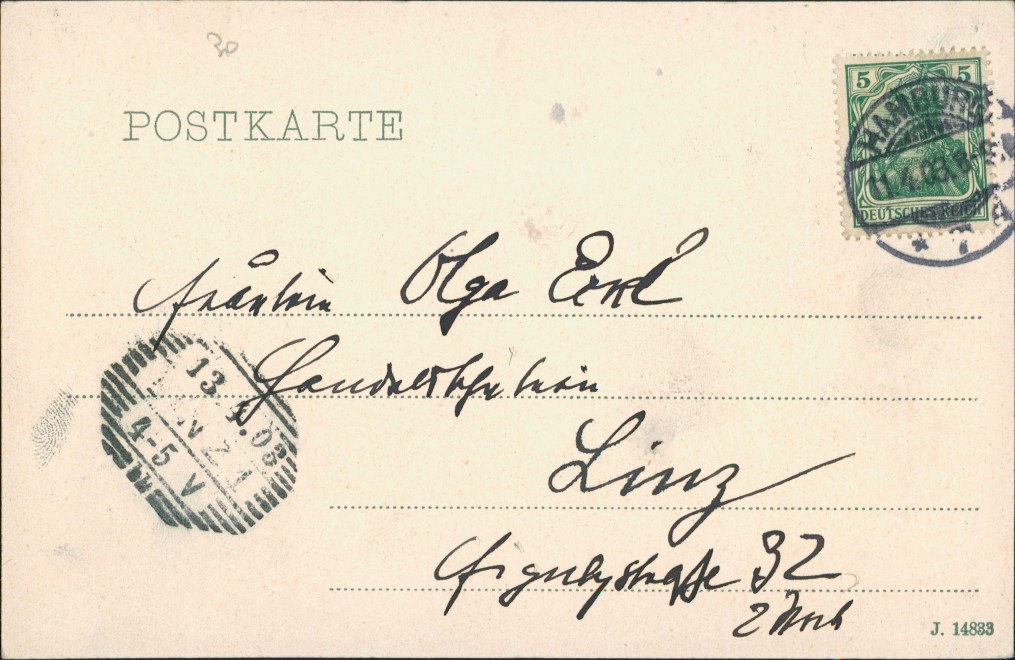 30
POSTKARTE
5 5
HAMBURG
11.4.03
DEUTSCHES REICH
* 7 *
Fräulein Olga Eckl
Handelsschülerin
13. 4. 03
4-5 V
Linz
32
2 Stock
J. 14833